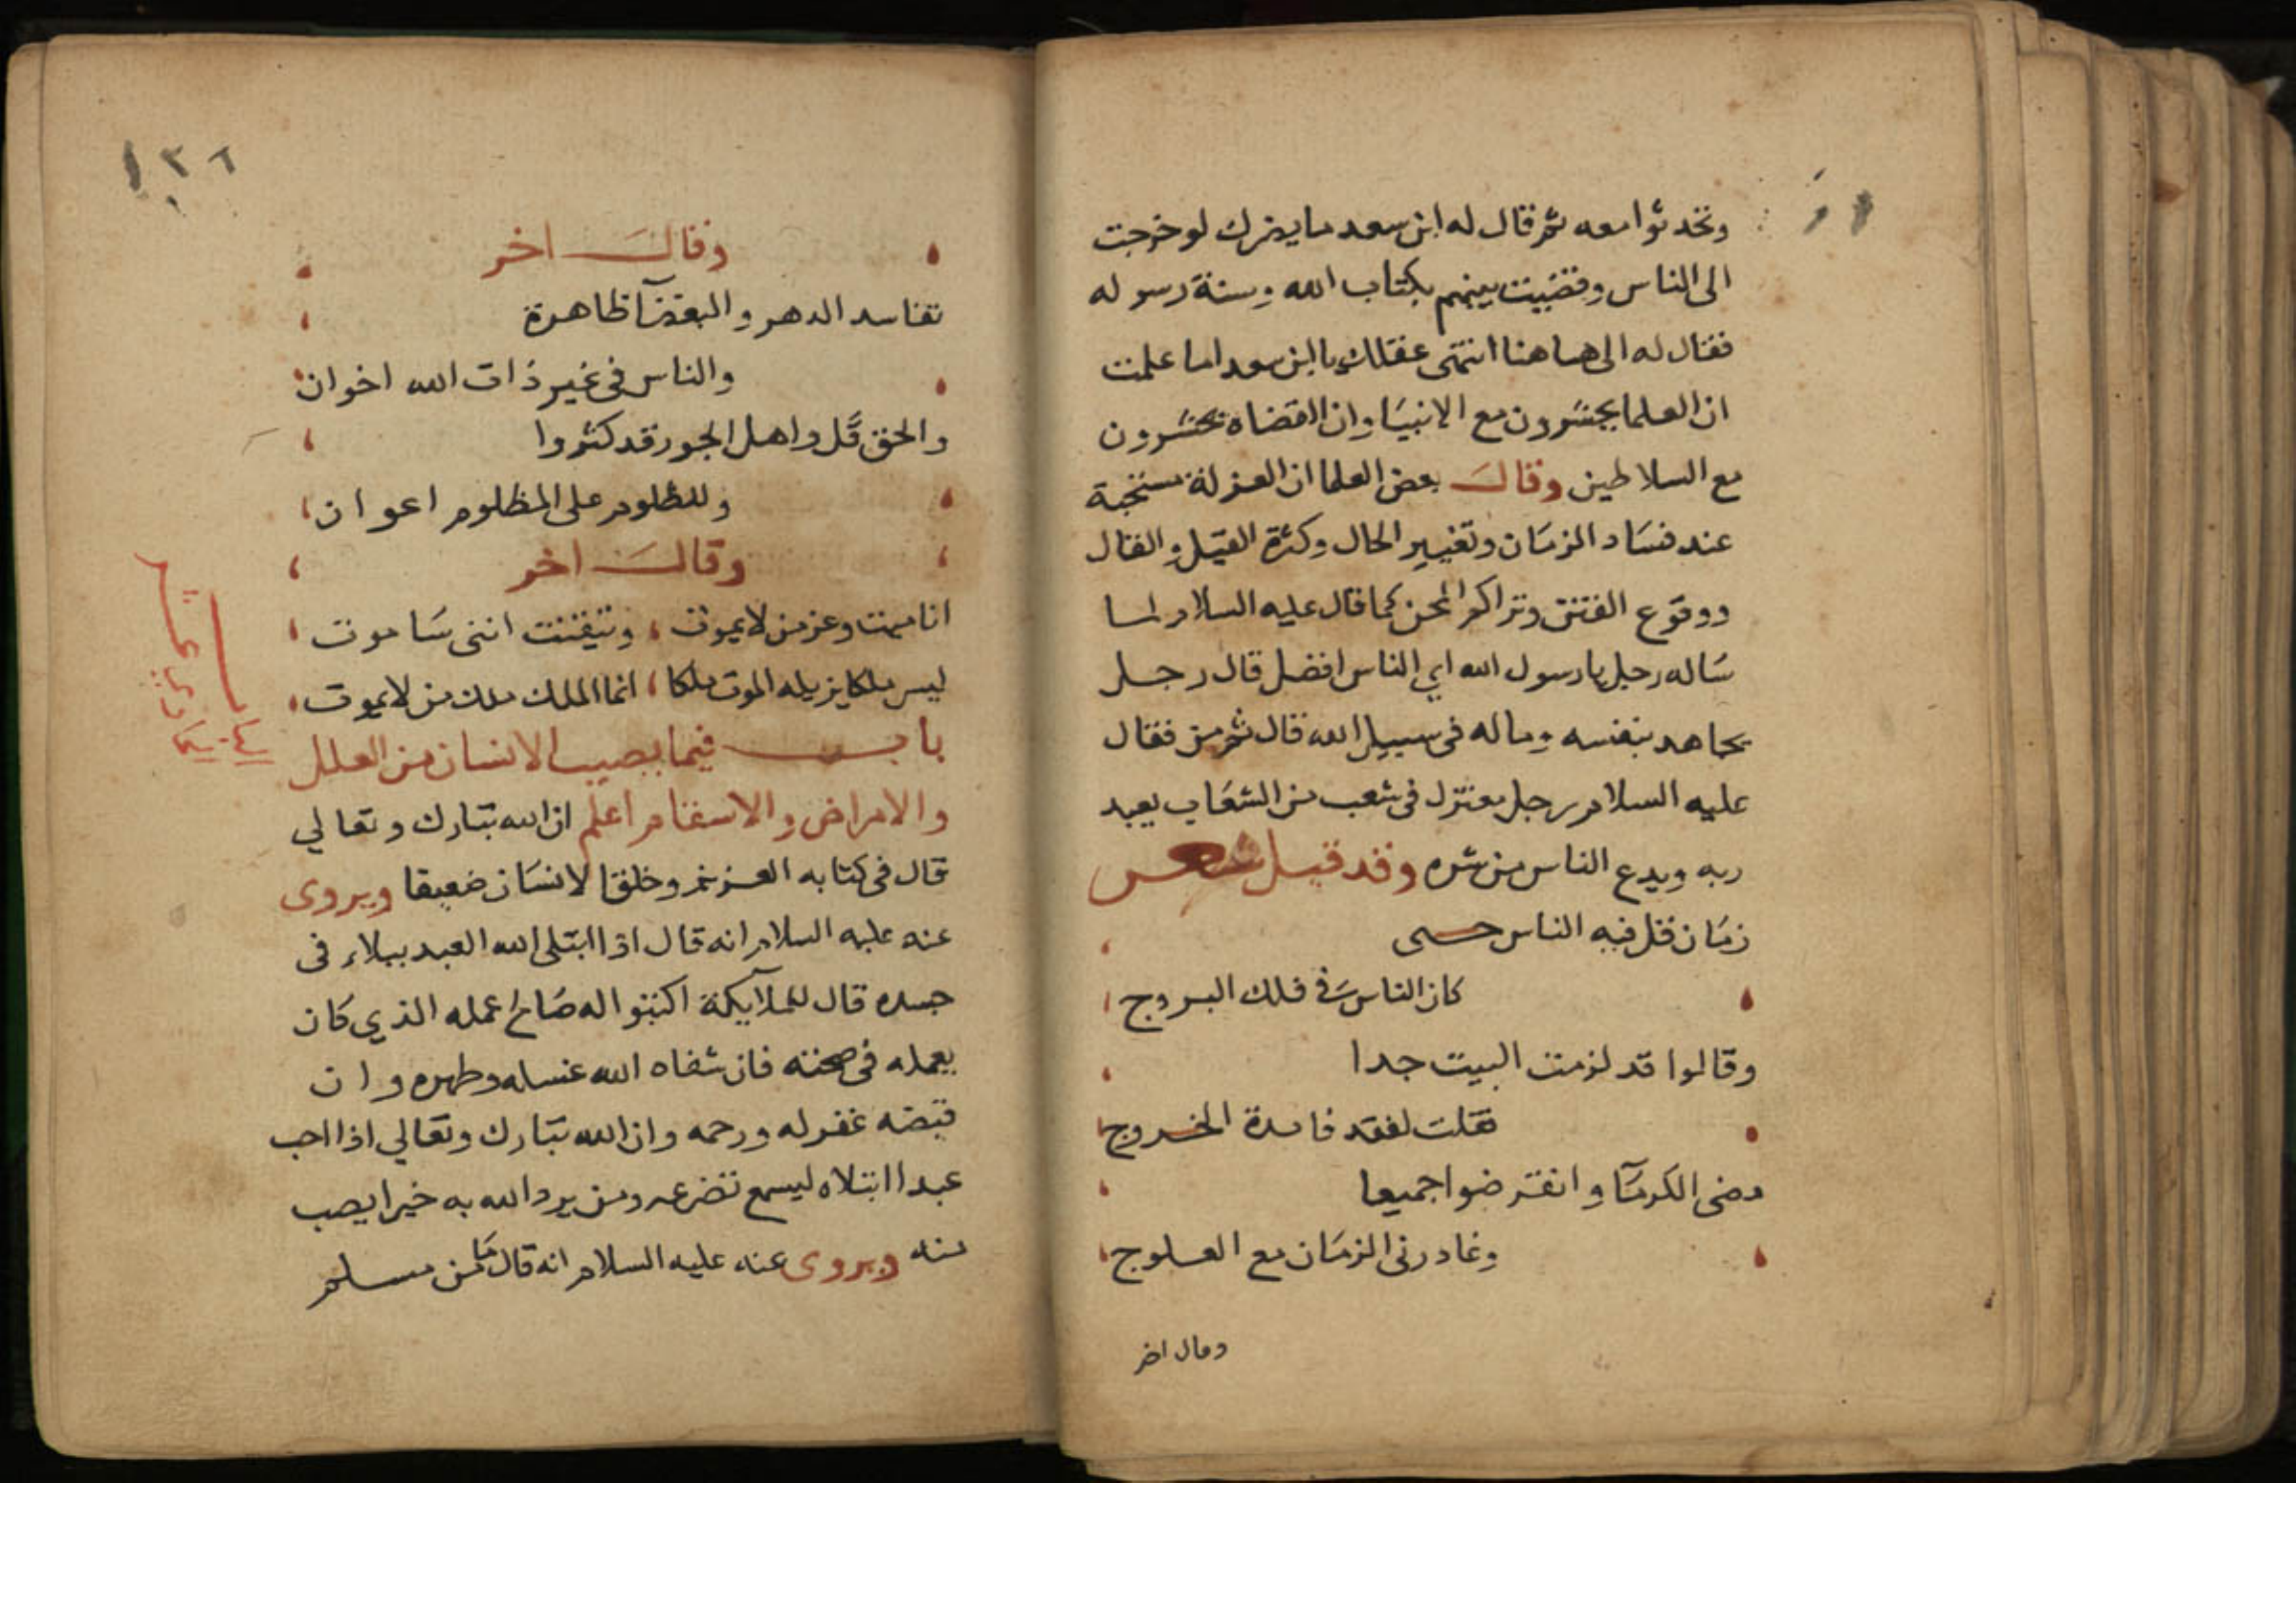 وتحدثوا معه ثم قال له ابن سعد ما يضرك لو خرجت
الى الناس وقضيت بينهم بكتاب الله وسنة رسوله
فقال له الى هاهنا انتهى عقلك يا ابن سعد اما علمت
ان العلما يحشرون مع الانبيا وان القضاه يحشرون
مع السلاطين وقال بعض العلما ان العزلة مستحبة
عند فساد الزمان وتغيير الحال وكثرة القيل والقال
ووقوع الفتن وتراكم المحن كما قال عليه السلام لما
ساله رجل يا رسول الله اي الناس افضل قال رجل
يجاهد بنفسه وماله في سبيل الله قال ثم من فقال
عليه السلام رجل معتزل في شعب من الشعاب يعبد
ربه ويدع الناس من شره وقد قيل شعر
زمان قل فيه الناس حتى
كان الناس في فلك البروج
وقالوا قد لزمت البيت جدا
فقلت لفقد فايدة الخروج
مضى الكرما وانقرضوا جميعا
وغادرني الزمان مع العلوج
وقال اخر
١٣٦
وقال اخر
تفاسد الدهر والبغضا ظاهرة
والناس في غير ذات الله اخوان
والحق قل واهل الجور قد كثروا
وللظلوم على المظلوم اعوان
وقال اخر
انا ميت وعز من لا يموت وتيقنت انني ساموت
ليس ملكا يزيله الموت ملكا انما الملك ملك من لا يموت
باب فيما يصيب الانسان من العلل
والامراض والاسقام اعلم ان الله تبارك وتعالي
قال في كتابه العزيز وخلق الانسان ضعيفا ويروى
عنه عليه السلام انه قال اذا ابتلى الله العبد ببلاء في
جسده قال للملآيكة اكتبوا له صالح عمله الذي كان
يعمله في صحته فان شفاه الله غسله وطهره وان
قبضه غفر له ورحمه وان الله تبارك وتعالي اذا احب
عبدا ابتلاه ليسمع تضرعه ومن يرد الله به خيرا يصب
منه ويروى عنه عليه السلام انه قال ما من مسلم